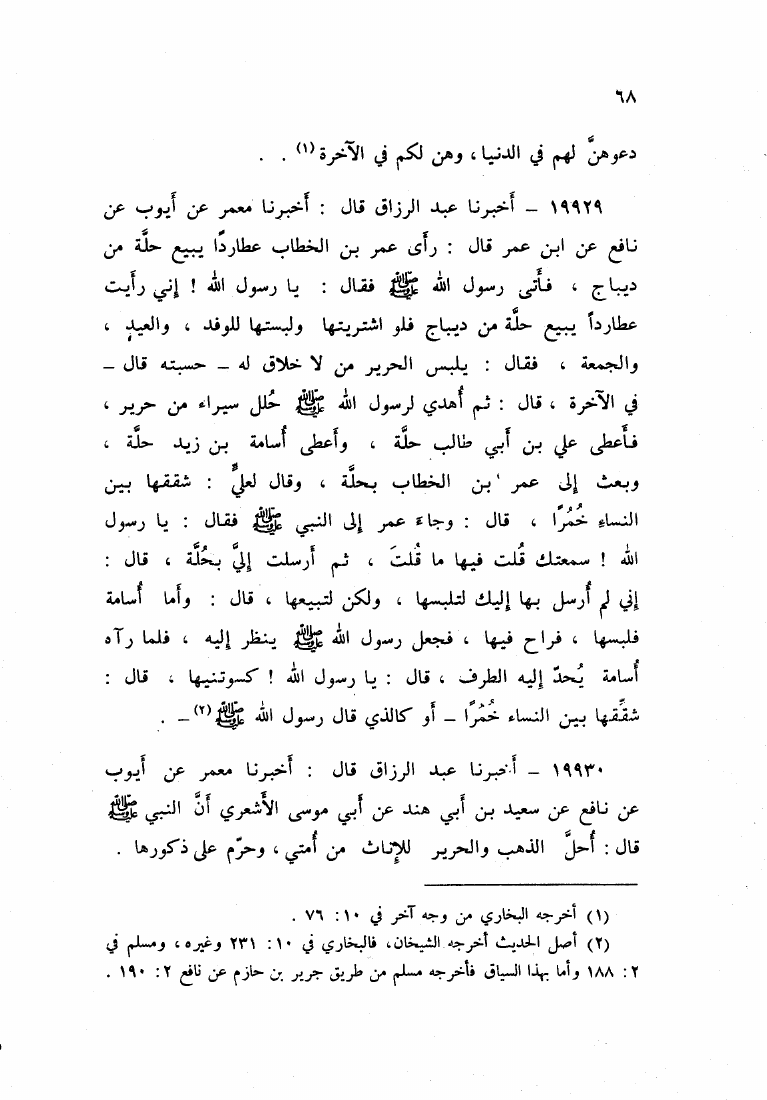 ٦٨
دعوهنَّ لهم في الدنيا، وهن لكم في الآخرة (١) . .
١٩٩٢٩ – أَخبرنا عبد الرزاق قال : أَخبرنا معمر عن أَيوب عن
نافع عن ابن عمر قال : رأَى عمر بن الخطاب عطاردًا يبيع حلَّة من
ديباج ، فأَتى رسول الله ﷺ فقال : يا رسول الله ! إني رأَيت
عطارداً يبيع حلَّة من ديباج فلو اشتريتها ولبستها للوفد ، والعيدِ ،
والجمعة ، فقال : يلبس الحرير من لا خلاق له – حسبته قال –
في الآخرة ، قال : ثم أُهدي لرسول الله ﷺ حُلل سيراء من حرير ،
فأَعطى علي بن أَبي طالب حلَّة ، وأَعطى أُسامة بن زيد حلَّة ،
وبعث إلى عمر بن الخطاب بحلَّة ، وقال لعليٍّ : شققها بين
النساءِ خُمُرًا ، قال : وجاءَ عمر إلى النبي ﷺ فقال : يا رسول
الله ! سمعتك قُلت فيها ما قُلتَ ، ثم أَرسلت إليَّ بحُلَّة ، قال :
إني لم أُرسل بها إليك لتلبسها ، ولكن لتبيعها ، قال : وأَما أُسامة
فلبسها ، فراح فيها ، فجعل رسول الله ﷺ ينظر إليه ، فلما رآه
أُسامة يُحدّ إليه الطرف ، قال : يا رسول الله ! كسوتنيها ، قال :
شقِّقها بين النساء خُمُرًا – أَو كالذي قال رسول الله ﷺ (٢) – .
١٩٩٣٠ – أَخبرنا عبد الرزاق قال : أَخبرنا معمر عن أَيوب
عن نافع عن سعيد بن أَبي هند عن أَبي موسى الأَشعري أَنَّ النبي ﷺ
قال : أُحلَّ الذهب والحرير للإناث من أُمتي ، وحرّم على ذكورها .
(١) أخرجه البخاري من وجه آخر في ١٠ : ٧٦ .
(٢) أصل الحديث أخرجه الشيخان، فالبخاري في ١٠ : ٢٣١ وغيره، ومسلم في
٢ : ١٨٨ وأما بهذا السياق فأخرجه مسلم من طريق جرير بن حازم عن نافع ٢ : ١٩٠ .